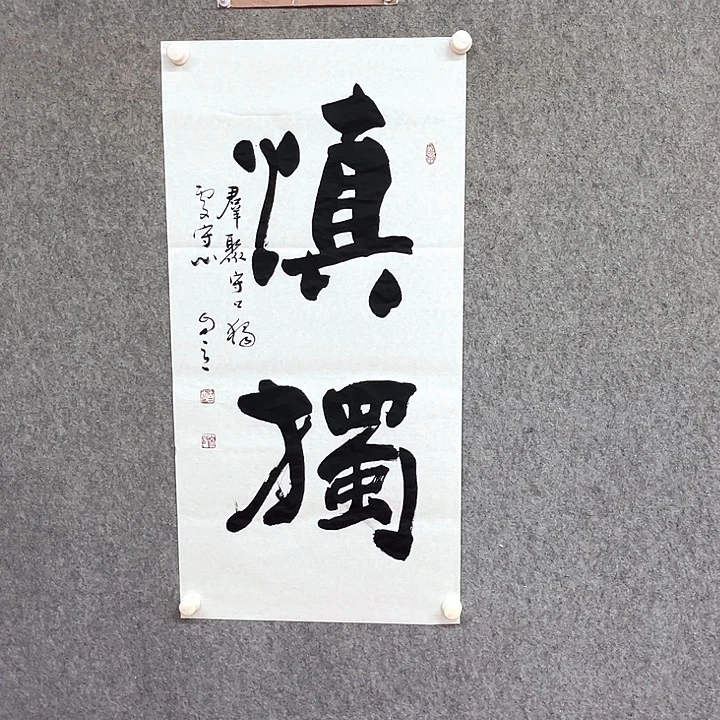 慎獨
群聚守口獨
處守心